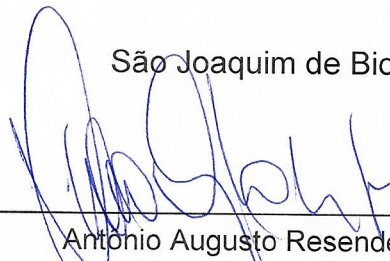 São Joaquim de Bic
Antônio Augusto Resende